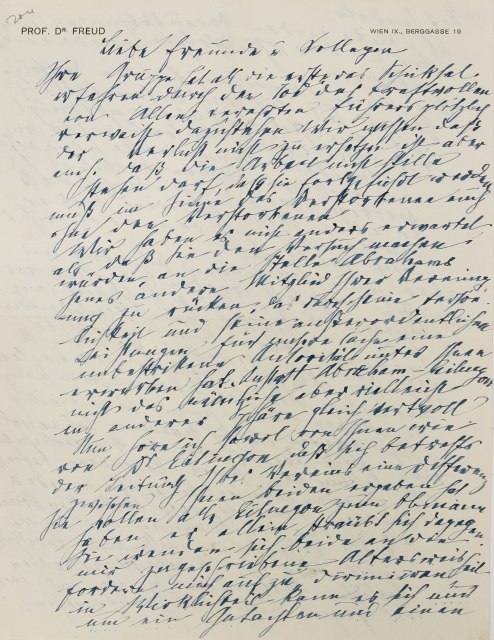 PROF. DR. FREUD WIEN IX., BERGGASSE 19
Liebe Freunde u Kollegen
Ihre Gruppe hat als die erste das Schicksal
erfahren durch den Tod des kraftvollen
von Allen verehrten Führers plötzlich
verwaist dazustehen Wir wissen daß
der Verlust nicht zu ersetzen ist aber
auch daß die Arbeit nicht stille
stehen darf, daß sie fortgeführt werden
muß im Sinne des Verstorbenen auch
ohne den Verstorbenen
Wir haben es nicht anders erwartet
als daß Sie den Versuch machen
würden, an die Stelle Abrahams
jenes andere Mitglied Ihrer Vereini-
gung zu rücken das durch seine Persön-
lichkeit und seine außerordentlichen
Leistungen für unsere Sache eine
unbestrittene Autorität unter Ihnen
erworben hat. Anstatt Abraham – Eitingon
nicht das nämliche aber vielleicht
in anderer Sphäre gleich wertvoll
Nun höre ich sowol von Ihnen wie
von Dr Eitingon daß sich betreffs
der Leitung des Vereins eine Differenz
zwischen Ihnen beiden ergeben hat
Sie wollen alle Eitingon zum Obmann
haben, er allein sträubt sich dagegen
Sie wenden sich beide an die
mir zugeschriebene Altersweisheit
fordern mich auf zu dirimiren
in Wirklichkeit kann es sich nur
um ein Gutachten und einen